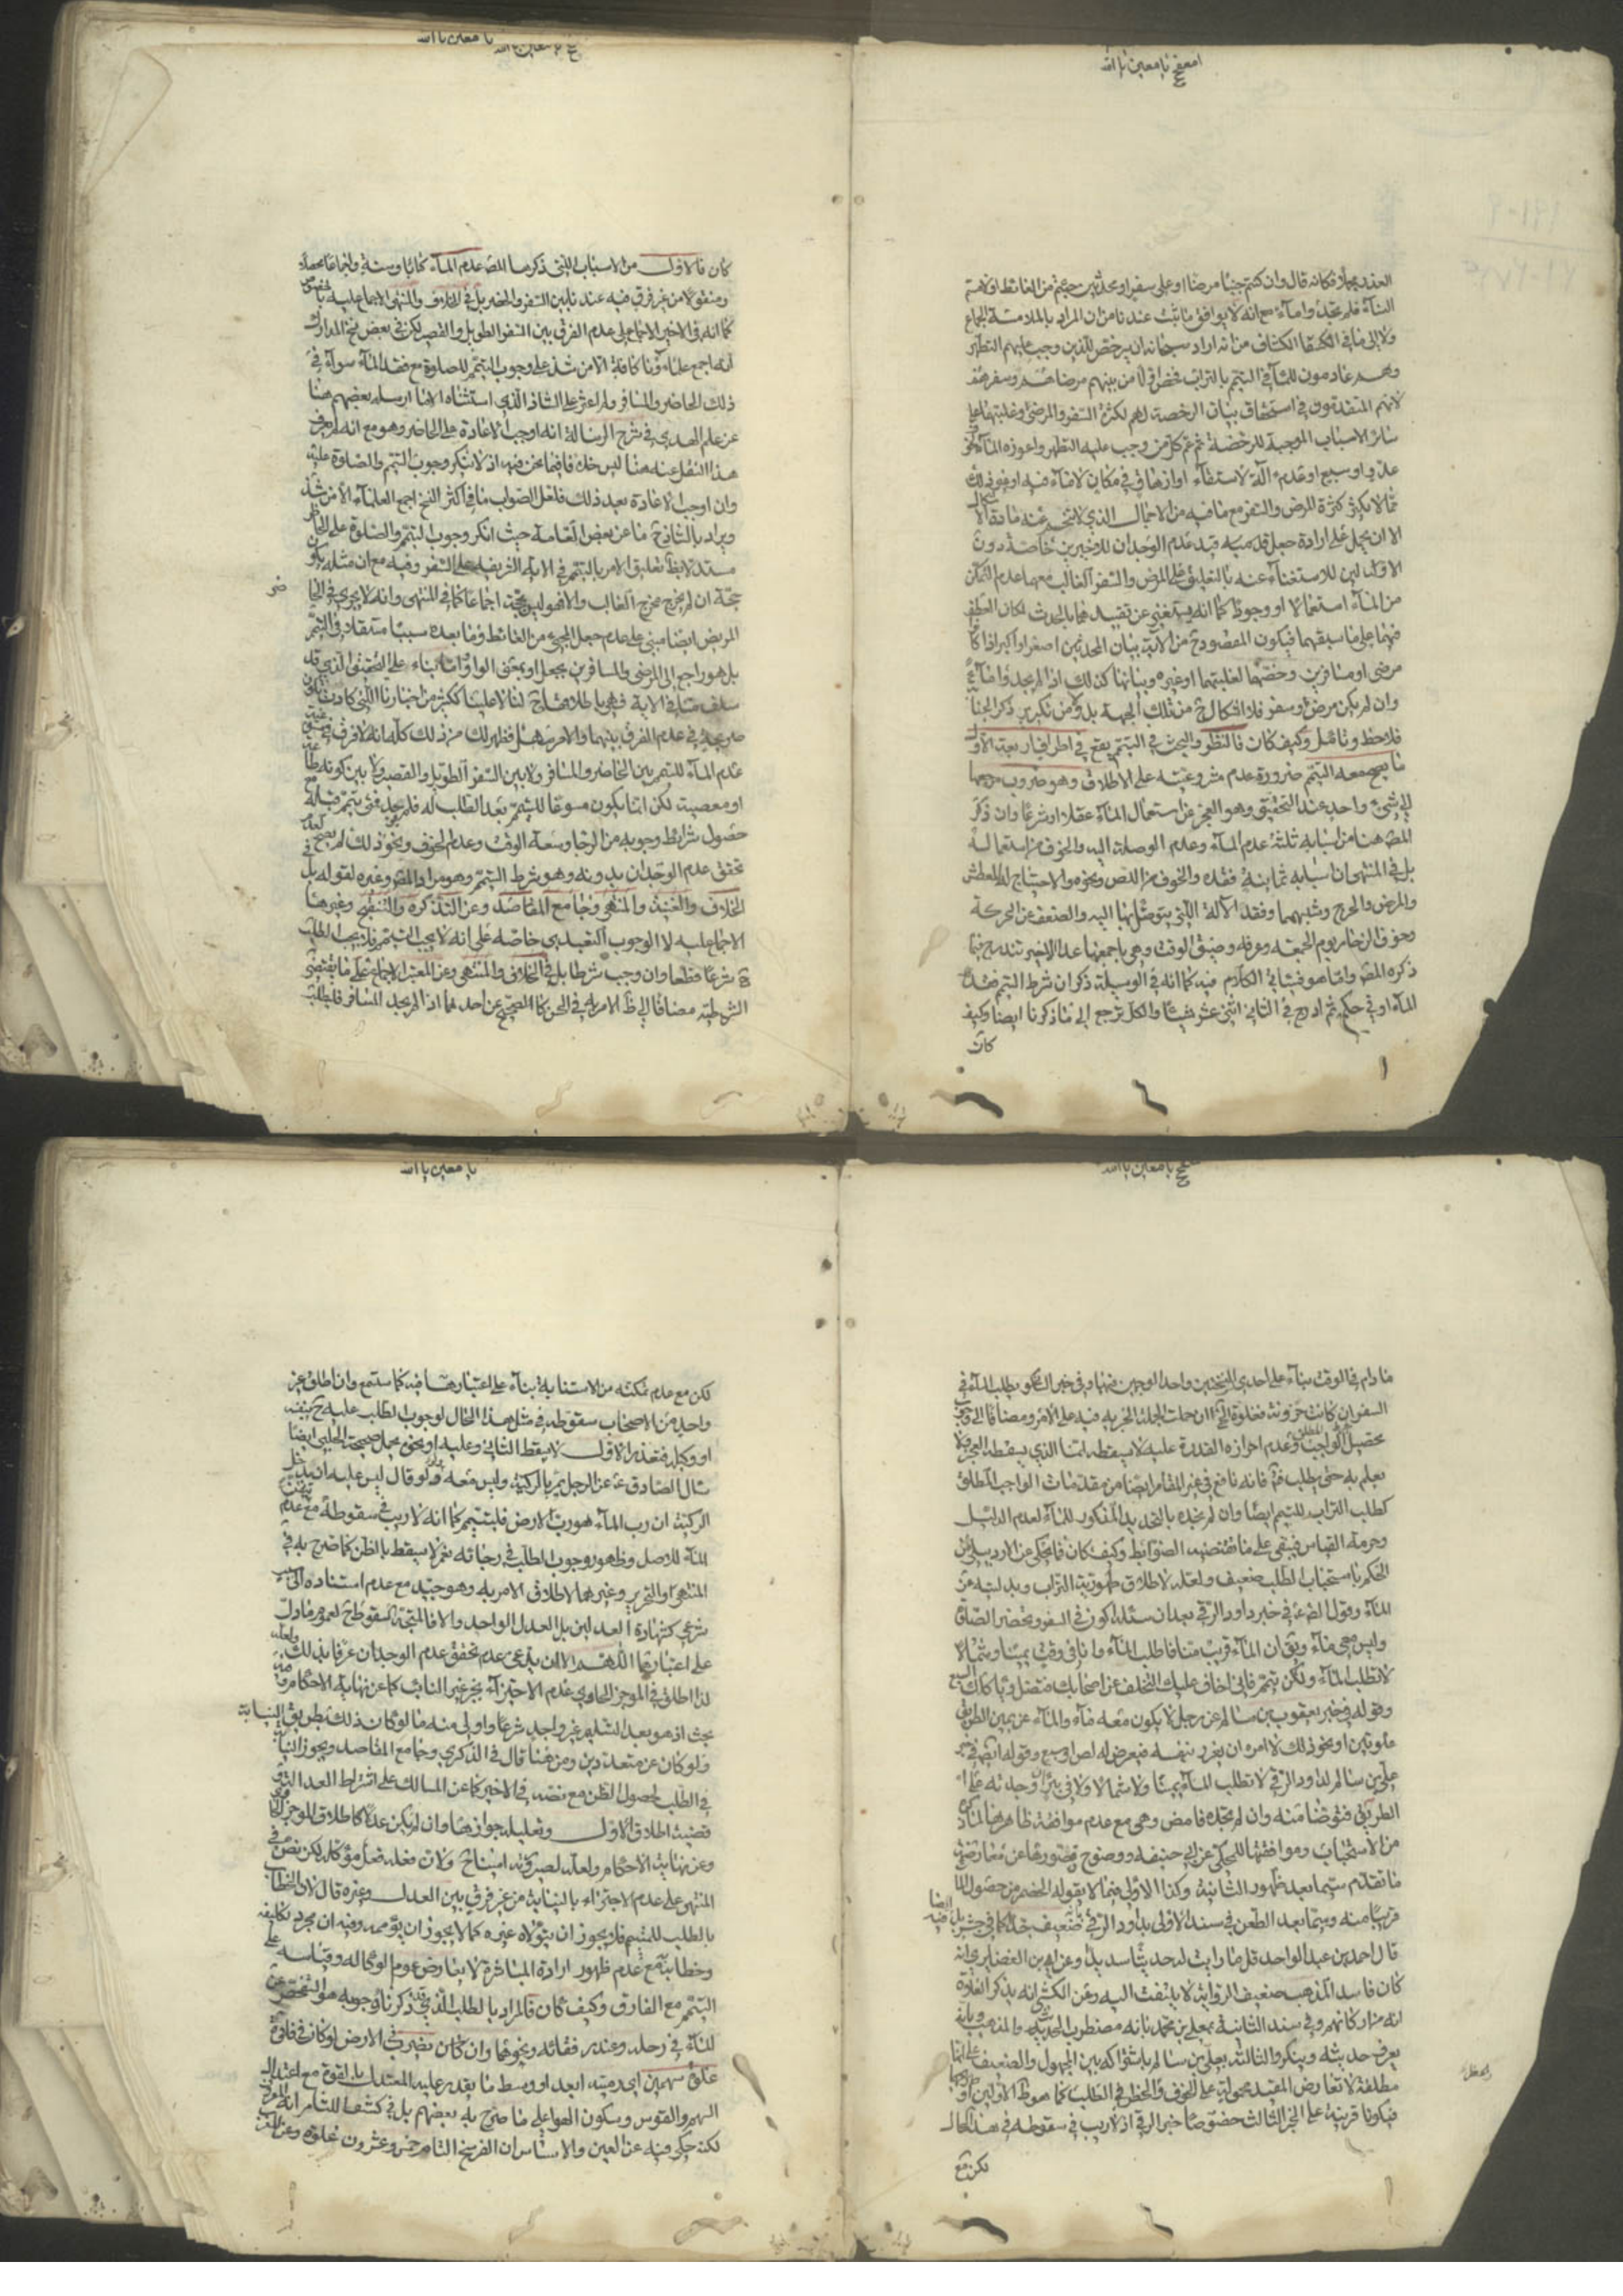 يا معين يا الله
العذر مجملا فكانه قال وان كنتم جنبا مرضا او على سفر او محدثين جئتم من الغائط او لامستم
النساء فلم تجدوا ماء مع انه لا يوافق ما ثبت عندنا من ان المراد بالملامسة الجماع
ولا الى ما في الكشاف من انه اراد سبحانه ان يرخص للذين وجب عليهم التطهر
وهم عادمون للماء في التيمم بالتراب فخص اولا من بينهم مرضاهم وسفرهم
لانهم المتقدمون في استحقاق بيان الرخصة لهم لكثرة السفر والمرض وغلبتهما على
سائر الاسباب الموجبة للرخصة ثم عم كل من وجب عليه التطهر واعوزه الماء لخوف
عدو او سبع او عدم الة الاستقاء او ازهاق في مكان لا ماء فيه او غير ذلك
مما لا يكثر كثرة المرض والسفر مع ما فيه من الاجمال الذي لا
الا ان يحمل على ارادة جعل قيد عدم الوجدان للاخيرين خاصة دون
الاولين للاستغناء عنه بالتعليق على المرض والسفر الغالب معهما عدم التمكن
من الماء استعمالا او وجودا كما انه يستغني عن تقييدهما بالحدث لمكان العطف
فيهما على ما سبقهما فيكون المقصود من الاية بيان المحدثين اصغر او اكبر اذا كانوا
مرضى او مسافرين وخصهما لغلبتهما او غيره وبيانها كذلك اذا لم يجدوا ماء
وان لم يكن مرض او سفر فلا اشكال ح من تلك الجهة بل ولا من تكرير ذكر الجنابة
فلاحظ وتامل وكيف كان فالنظر والبحث في التيمم يقع في اطراف اربعة الاول
ما يصح معه التيمم ضرورة عدم مشروعيته على الاطلاق وهو ضروب مرجعها
الى شيء واحد عند التحقيق وهو العجز عن استعمال الماء عقلا او شرعا وان ذكر
المصنف هنا من اسبابه ثلثة عدم الماء وعدم الوصلة اليه والخوف من استعماله
بل في المنتهى ان اسبابه ثمانية فقده والخوف من اللص ونحوه والاحتياج للعطش
والمرض والجرح وشبههما وفقد الالة التي يتوصل بها اليه والضعف عن الحركة
وخوف الزحام يوم الجمعة وعرفة وضيق الوقت وهي باجمعها عدا الاخير تندرج فيما
ذكره المص واما هو فسياتي الكلام فيه كما انه في الوسيلة ذكر ان شرط التيمم فقد
الماء او في حكمه ثم ادرج في الثاني اثنى عشر شيئا والكل ترجع الى ما ذكرنا ايضا وكيف
كان
يا معين يا الله
كان فالاول من الاسباب التي ذكرها المص عدم الماء كتابا وسنة واجماعا محصلا
ومنقولا من غير فرق فيه عندنا بين السفر والحضر بل في الخلاف والمنتهى الاجماع عليه
كما انه في الاخير الاجماع على عدم الفرق بين السفر الطويل والقصير لكن في بعض نسخ المدارك
انه اجمع علماؤنا كافة الا من شذ على وجوب التيمم للصلوة مع فقد الماء سواء في
ذلك الحاضر والمسافر ولم اعثر على الشاذ الذي استثناه الا ما ارسله بعضهم هنا
عن علم الهدى في شرح الرسالة انه اوجب الاعادة على الحاضر وهو مع انه لم يعرف
هذا النقل عنه هنا ليس خلافا فيما نحن فيه اذ لا ينكر وجوب التيمم والصلوة عليه
وان اوجب الاعادة بعد ذلك فلعل الصواب ما في اكثر النسخ اجمع العلماء الا من شذ
ويراد بالشاذ ح ما عن بعض العامة حيث انكر وجوب التيمم والصلوة على الحاضر
مستدلا بظ تعليق الامر بالتيمم في الاية الشريفة على السفر وفيه مع ان مثله يكون
حجة ان لم يخرج مخرج الغالب والا فهو ليس بحجة اجماعا كما في المنتهى وانه لا يجري في
المريض ايضا مبني على عدم جعل المجيء من الغائط وما بعده سببا مستقلا في التيمم
بل هو راجع الى المرضى والمسافرين بجعل او بمعنى الواو واما بناء على التحقيق الذي قد
سلف منا في الاية فهي باطلاقها ح لنا لا علينا ككثير من اخبارنا التي كادت تكون
صريحة في عدم الفرق بينهما والامر سهل فظهر لك من ذلك كله انه لا فرق في
عدم الماء للتيمم بين الحاضر والمسافر ولا بين السفر الطويل والقصير ولا بين كونه طاعة
او معصية لكن انما يكون مسوغا للتيمم بعد الطلب له فلم يجد فمتى تيمم قبله مع
حصول شرائط وجوبه من الرجا وسعة الوقت وعدم الخوف ونحو ذلك لم يصح لعدم
تحقق عدم الوجدان بدونه وهو شرط التيمم وهو مراد المص وغيره لقوله بل في
الخلاف والغنية والمنتهى وجامع المقاصد وعن التذكرة والتنقيح وغيرها
الاجماع عليه لا الوجوب التعبدي خاصة على انه لا يجب التيمم فلا يجب الطلب
شرعا قطعا وان وجب شرطا بل في الخلاف والمنتهى وعن المعتبر الاجماع على ما يقتضي
الشرطية مضافا الى ظ الامر به في الحسن كالصحيح عن احدهما اذا لم يجد المسافر فليطلب
يا معين يا الله
ما دام في الوقت بناء على احدى النسختين واحد الوجهين فيها وفي خبر السكوني يطلب الماء في
السفر ان كانت حزونة فغلوة الخ ان حملت الجملة الخبرية فيه على الامر ومضافا الى وجوب
تحصيل الواجب وعدم احرازه القدرة عليه لا يسقطه انما الذي يسقطه العجز ولا
يعلم به حتى يطلب فانه نافع في غير المقام ايضا من مقدمات الواجب المطلق
كطلب التراب للتيمم ايضا وان لم نحده بالتحديد المذكور للماء لعدم الدليل
وحرمة القياس فيبقى على ما تقتضيه الضوابط وكيف كان فما يحكى عن الاردبيلي من
الحكم باستحباب الطلب ضعيف ولعله لاطلاق طهورية التراب وبدليته عن
الماء وقول الصادق ع في خبر داود الرقي بعد ان سئله اكون في السفر وتحضر الصلوة
وليس معي ماء ويق ان الماء قريب منا فاطلب الماء وانا في وقت يمينا وشمالا
لا تطلب الماء ولكن تيمم فاني اخاف عليك التخلف عن اصحابك فتضل فياكلك السبع
وقوله في خبر يعقوب بن سالم عن رجل لا يكون معه ماء والماء عن يمين الطريق
غلوتين او نحو ذلك لا امره ان يغرر بنفسه فيعرض له لص او سبع وقوله ايضا في خبر
علي بن سالم لداود الرقي لا تطلب الماء يمينا ولا شمالا ولا في بئر ان وجدته على
الطريق فتوضا منه وان لم تجده فامض وهي مع عدم موافقة ظاهرها لما ذكره
من الاستحباب وموافقتها للمحكي عن ابي حنيفة ووضوح قصورها عن معارضة
ما تقدم سيما بعد ظهور الثانية وكذا الاولى فيما لا يقوله الخصم من حصول الماء
قريبا منه وسيما بعد الطعن في سند الاولى بداود الرقي ضعيف جدا كما في جش بل فيه ايضا
قال احمد بن عبد الواحد قل ما رايت له حديثا سديدا وعن ابن الغضايري انه
كان فاسد المذهب ضعيف الرواية لا يلتفت اليه وعن الكشي انه يذكر الغلاة
انه من اركانهم وفي سند الثانية بمعلى بن محمد بانه مضطرب الحديث والمذهب وبانه
يعرف حديثه وينكر والثالثة بعلي بن سالم باشتراكه بين المجهول والضعيف على انها
مطلقة لا تعارض المقيد محمولة على الخوف والخطر في الطلب كما هو ظ الاولين او صريحهما
فيكونا قرينة على الخبر الثالث خصوصا خبر الرقي اذ لا ريب في سقوطه في هذا الحال
لكن مع
يا معين يا الله
لكن مع عدم تمكنه من الاستنابة بناء على اعتبارها فيه كما ستسمع وان اطلق غير
واحد من الاصحاب سقوطه في مثل هذا الحال لوجوب الطلب عليه ح بنفسه
او وكيله فتعذر الاول لا يسقط الثاني وعليه او نحوه يحمل صحيحة الحلبي ايضا
سال الصادق ع عن الرجل يمر بالركية وليس معه دلو قال ليس عليه ان يدخل
الركية ان رب الماء هو رب الارض فليتيمم كما انه لا ريب في سقوطه مع تيقن عدم
الماء للاصل وظهور وجوب الطلب في رجائه نعم لا يسقط بالظن كما صرح به في
المنتهى والتحرير وغيرهما لاطلاق الامر به وهو جيد مع عدم استناده الى سبب
شرعي كشهادة العدلين بل العدل الواحد والا فالمتجه السقوط ح لعموم ما دل
على اعتبارهما اللهم الا ان يدعى عدم تحقق عدم الوجدان عرفا بذلك ولعله
لذا اطلق في الموجز الحاوي عدم الاجتزاء بخبر غير النائب كما عن نهاية الاحكام وفيه
بحث اذ هو بعد التسليم غير واجد شرعا واولى منه ما لو كان ذلك بطريق النيابة
ولو كان عن متعددين ومن هنا قال في الذكرى وجامع المقاصد ويجوز النيابة
في الطلب لحصول الظن مع نصه في الاخير كما عن المسالك على اشتراط العدالة
قضية اطلاق الاول وتعليله جوازها وان لم يكن عدلا كاطلاق الموجز الحاوي
وعن نهاية الاحكام ولعله لصيرورته امينا ح ولان فعله فعل موكله لكن نص في
المنتهى على عدم الاجتزاء بالنيابة من غير فرق بين العدل وغيره قال لان الخطاب
بالطلب للمتيمم فلا يجوز ان يتولاه غيره كما لا يجوز ان يؤممه وفيه ان مجرد تكليفه
وخطابه مع عدم ظهور ارادة المباشرة لا يعارض عموم الوكالة وقياسه على
التيمم مع الفارق وكيف كان فالمراد بالطلب الذي قد ذكرنا وجوبه هو التفحص عن
الماء في رحله وعند رفقائه ونحوهما وان كان يضرب في الارض لو كان في فلاة
غلوة سهمين اي رميته ابعد او وسط ما يقدر عليه المعتدل بالقوة مع اعتدال
السهم والقوس وسكون الهوا على ما صرح به بعضهم بل في كشف اللثام انه المعروف
لكنه حكى فيه عن العين والاساس ان الفرسخ التام خمس وعشرون غلوة وعن المغرب